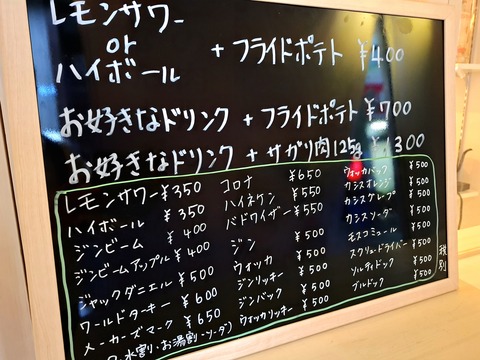 レモンサワー
or
ハイボール
+ フライドポテト ¥400
お好きなドリンク + フライドポテト ¥700
お好きなドリンク + サガリ肉125g ¥1300
レモンサワー ¥350
ハイボール ¥350
ジンビーム ¥400
ジンビームアップル ¥400
ジャックダニエル ¥500
ワールドターキー ¥600
メーカーズマーク ¥650
水割り・お湯割・ソーダ)
コロナ ¥650
ハイネケン ¥550
バドワイザー ¥550
ジン ¥500
ウォッカ ¥500
ジンリッキー ¥500
ジンバック ¥500
ウォッカリッキー ¥500
ウォッカバック ¥500
カシスオレンジ ¥500
カシスグレープ ¥500
カシスソーダ ¥500
モスコミュール ¥500
スクリュードライバー ¥500
ソルティドック ¥500
ブルドック ¥500
税別